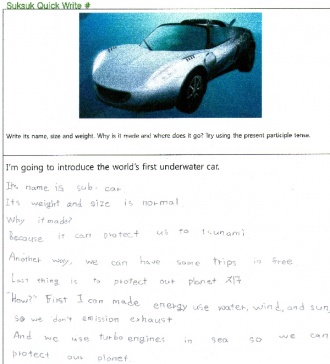 Suksuk Quick Write #
Write its name, size and weight. Why is it made and where does it go? Try using the present participle tense.
I'm going to introduce the world's first underwater car.
Its name is sub-car
Its weight and size is normal.
Why it made?
Because it can protect us to tsunami
Another way, we can have some trips in free
Last thing is to protect our planet
"How?" First I can made energy use water, wind, and sun,
so we don't emission exhaust
And we use turbo engines in sea so we can
protect our planet.